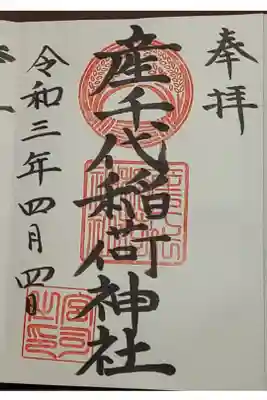 奉拝
産千代稲荷神社
令和三年四月四日